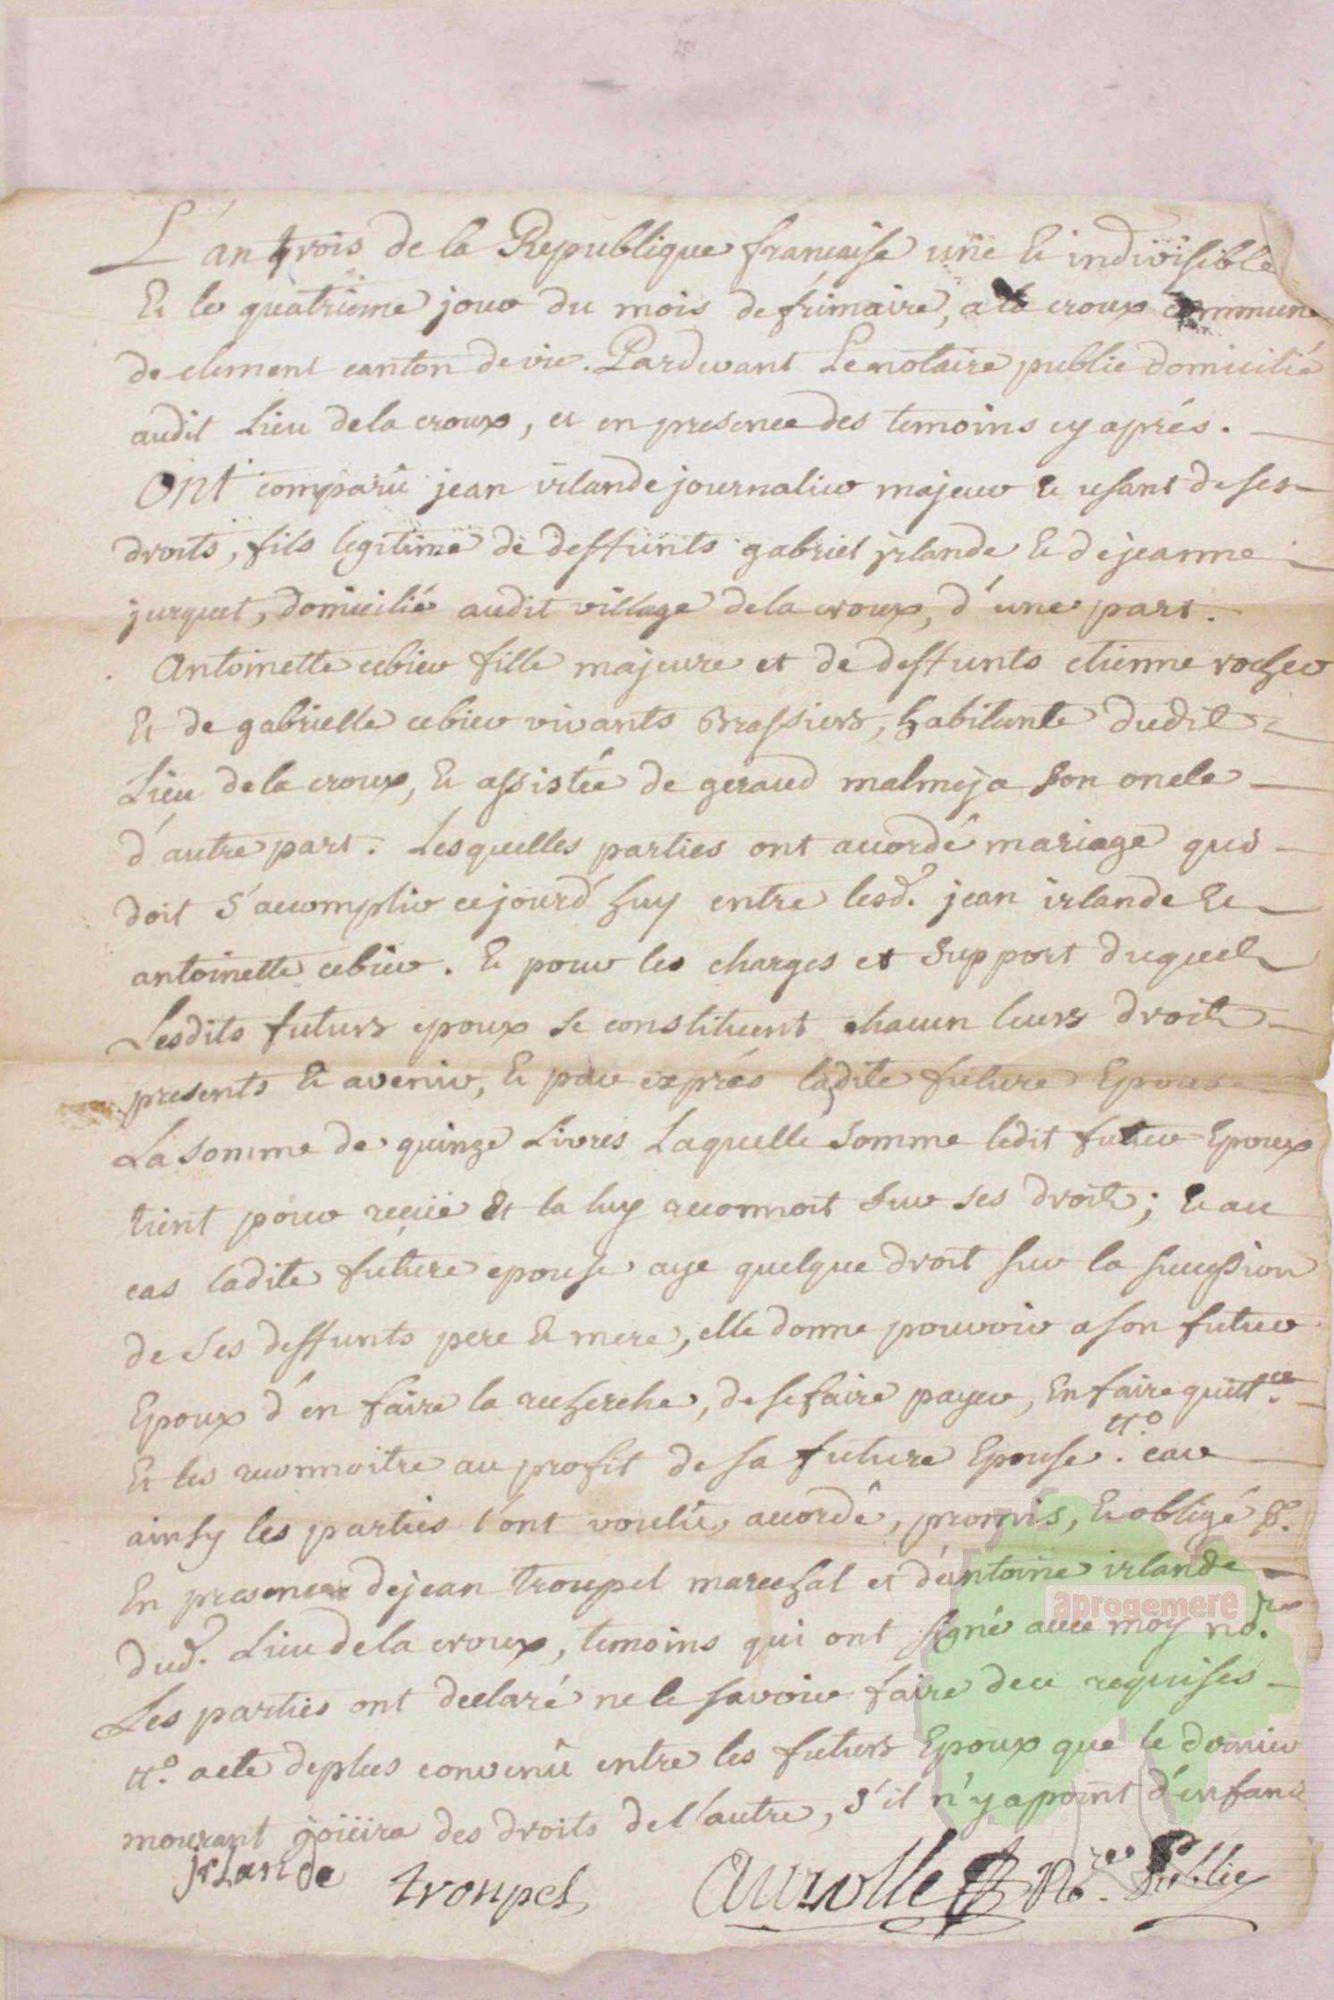 L'an trois de la Republique francaise une et indivisible
Et le quatrieme jour du mois de frimaire, a la croux commune
de clement canton de vic. Pardevant Le notaire public domicilié
audit Lieu de la croux, et en presence des temoins cy aprés.
Ont comparû jean irlande journalier majeur et usant de ses
droits, fils legitime de deffunts gabriel jrlande et de jeanne
jurquet, domicilié audit village de la croux, d'une part.
Antoinette cebier fille majeure et de deffunts etienne rocher
Et de gabrielle cebier vivants Brassiers, habitante dudit
Lieu de la croux, et assistée de geraud malmeja son oncle
d'autre part. Lesquelles parties ont acordé mariage qui
doit s'accomplir cejourd'huy entre lesd. jean irlande et
antoinette cebier. Et pour les charges et support duquel
Lesdits futurs epoux se constituent chacun leurs droits
presents et avenir, et par exprés ladite future Epouse
La somme de quinze Livres Laquelle somme ledit futur Epoux
tient pour reçüe et la luy reconnoit sur ses droits; et au
cas ladite future epouse aye quelque droit sur la succession
de ses deffunts pere et mere, elle donne pouvoir a son futur
Epoux d'en faire la recherche, de se faire payer, En faire quittce.
Et les reconnoitre au profit de sa future Epouse. car
ainsy les parties l'ont voulû, acordé, promis, et obligé
En presence de jean troupel marechal et d'antoine irlande
dud. Lieu de la croux, temoins qui ont signé avec moy nore.
Les parties ont declaré ne le savoir faire de ce requises
acte de plus convenû entre les futurs Epoux que le dernier
mourant joüira des droits de l'autre, s'il n'y a point d'enfans
jrlande troupel Aurolle Nore. Public
aprogemere